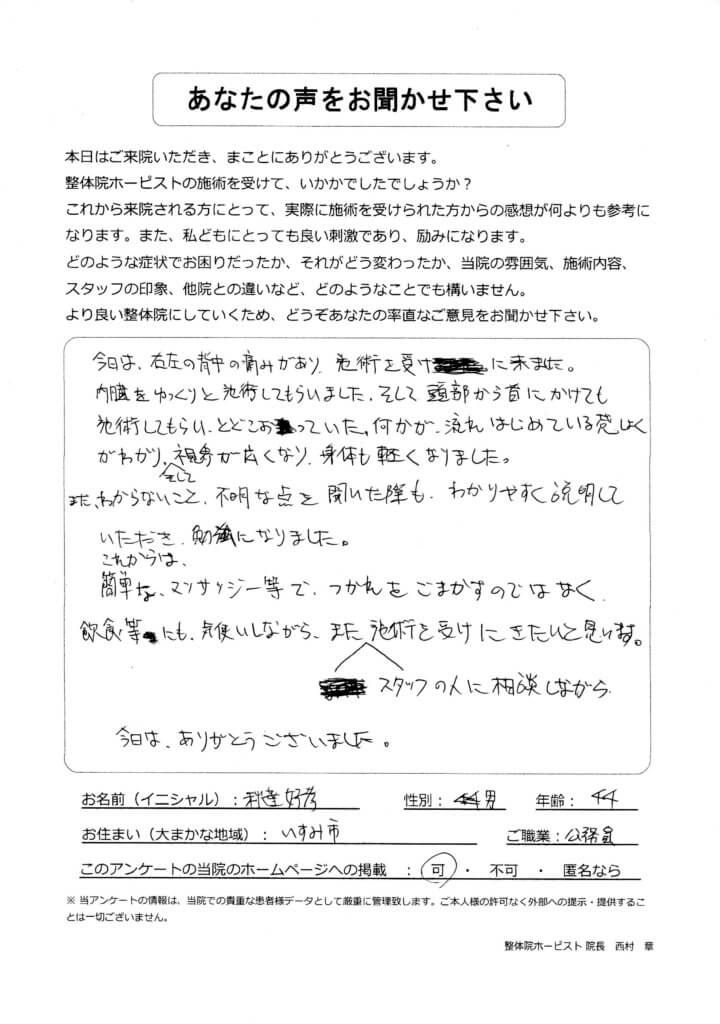 あなたの声をお聞かせ下さい
本日はご来院いただき、まことにありがとうございます。
整体院ホーピストの施術を受けて、いかかでしたでしょうか？
これから来院される方にとって、実際に施術を受けられた方からの感想が何よりも参考に
なります。また、私どもにとっても良い刺激であり、励みになります。
どのような症状でお困りだったか、それがどう変わったか、当院の雰囲気、施術内容、
スタッフの印象、他院との違いなど、どのようなことでも構いません。
より良い整体院にしていくため、どうぞあなたの率直なご意見をお聞かせ下さい。
今日は、右左の背中の痛みがあり、施術を受けに来ました。
内臓をゆっくりと施術してもらいました。そして頭部から首にかけても
施術してもらい、とどこおっていた、何かが、流れはじめている
がわかり、視界が広くなり、身体も軽くなりました。
そして
また、わからないこと、不明な点を聞いた際も、わかりやすく説明して
いただき、勉強になりました。
これからは、
簡単な、マッサッジー等で、つかれをごまかすのではなく、
飲食等にも、気使いしながら、また施術を受けにきたいと思います。
スタッフの人に相談しながら
今日は、ありがとうございました。
お名前（イニシャル）：好彦 性別：男 年齢：44
お住まい（大まかな地域）：いすみ市 ご職業：公務員
このアンケートの当院のホームページへの掲載 ： 可 ・ 不可 ・ 匿名なら
※ 当アンケートの情報は、当院での貴重な患者様データとして厳重に管理致します。ご本人様の許可なく外部への提示・提供するこ
とは一切ございません。
整体院ホーピスト 院長 西村 章